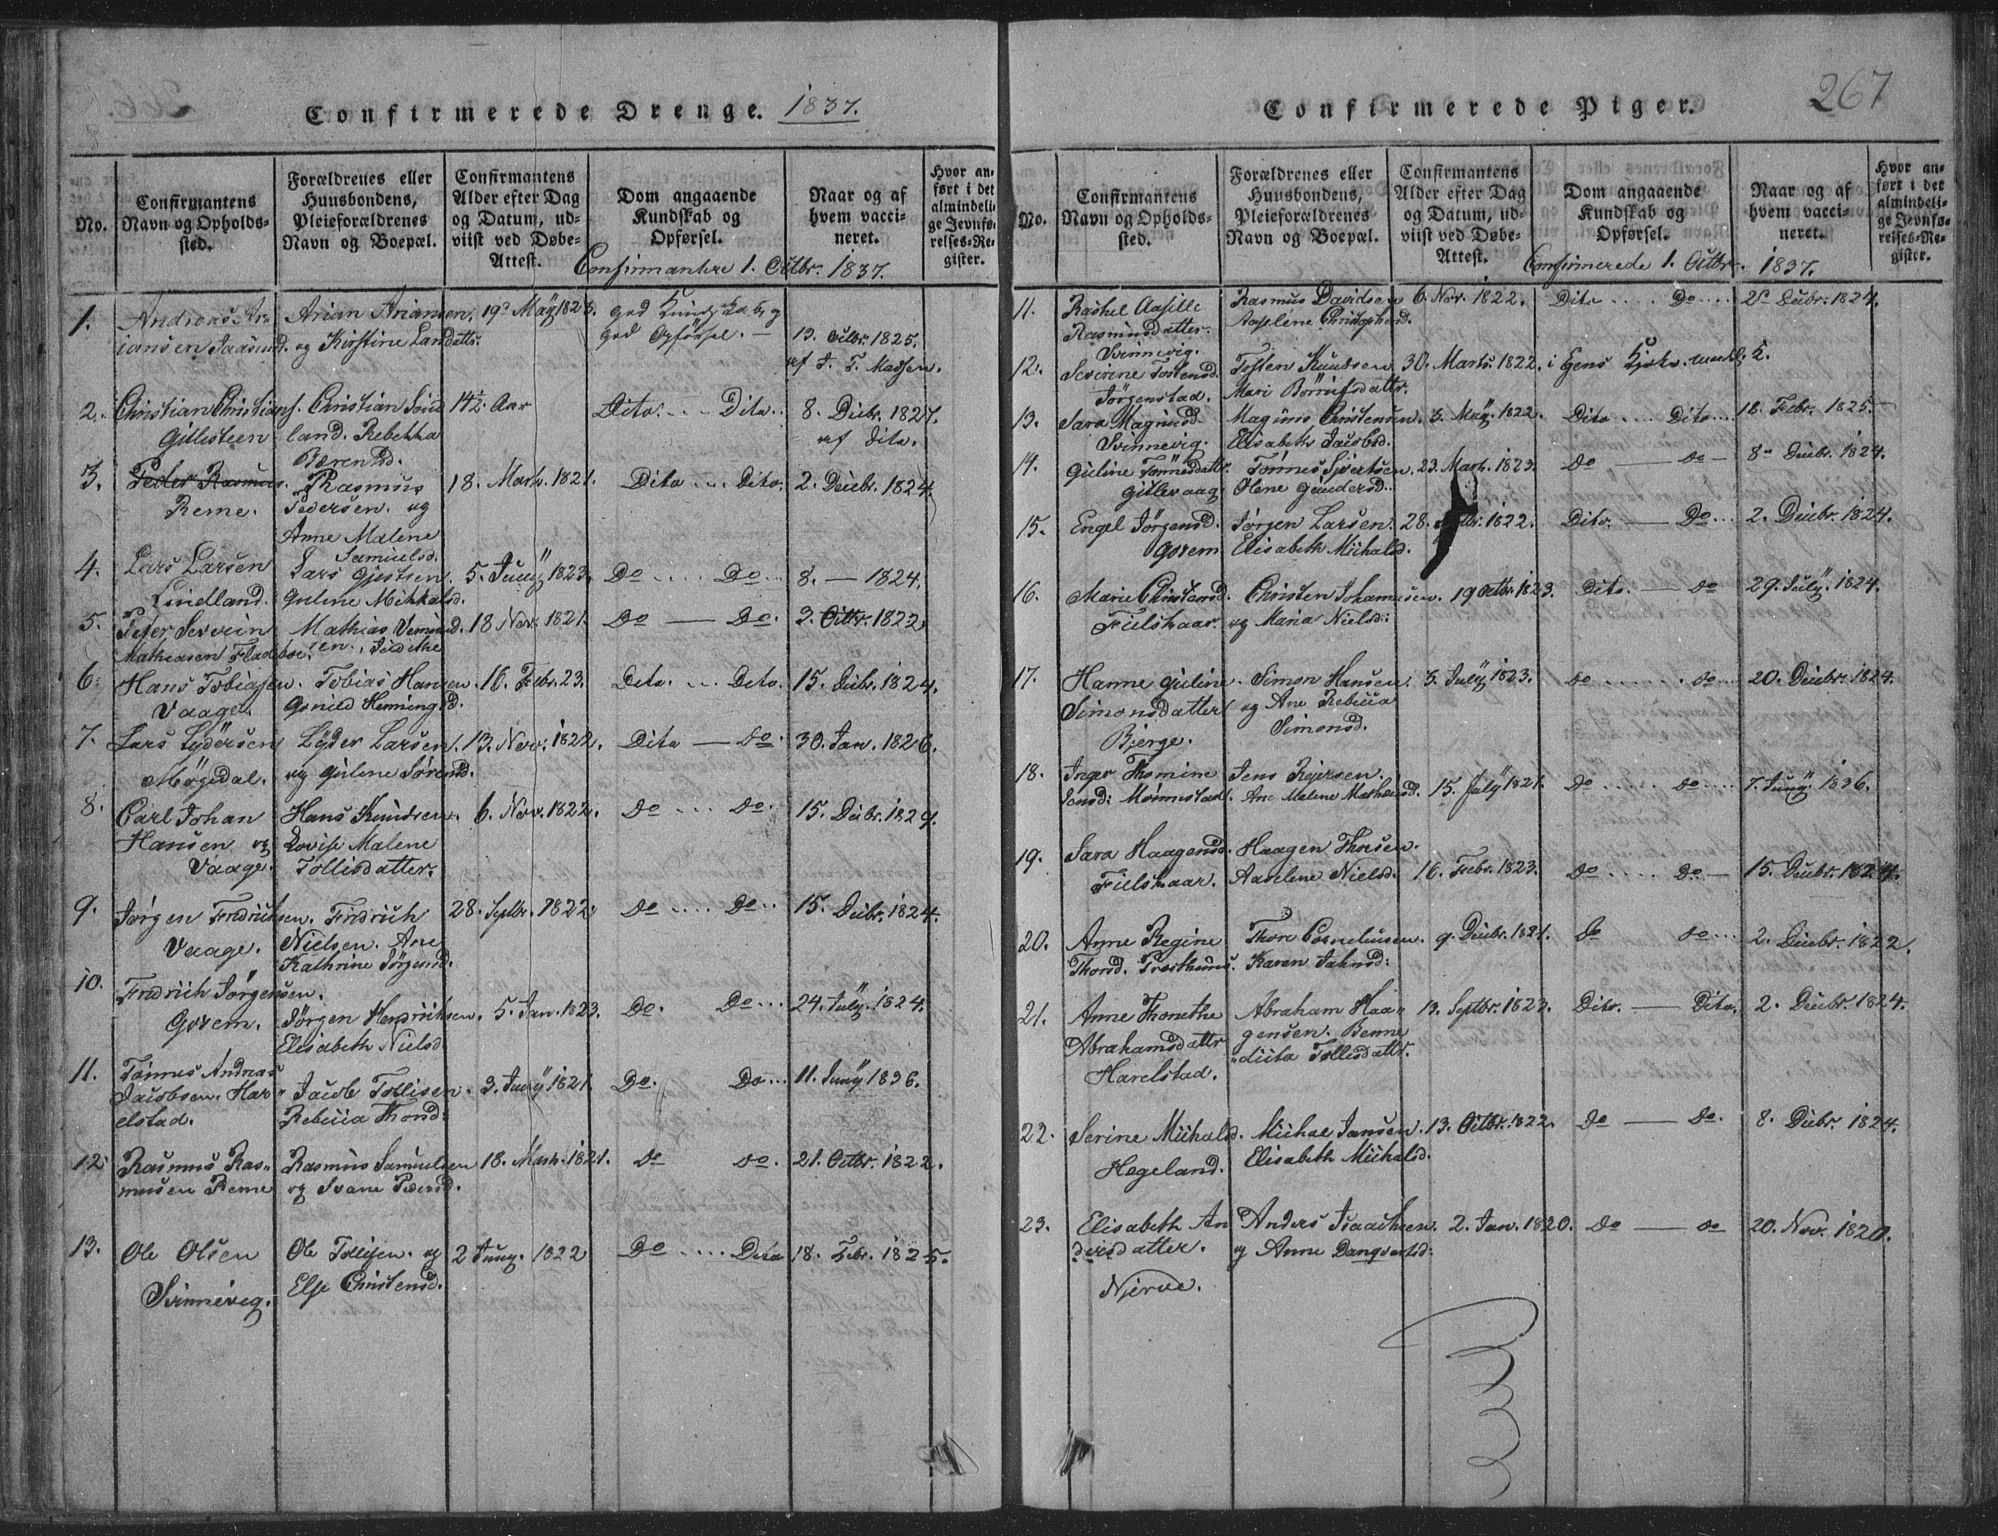 Confirmerede Drenge. 1837.
No.
Confirmantens Navn og Opholds-sted.
Forældrenes eller Huusbondens, Pleieforældrenes Navn og Boepæl.
Confirmantens Alder efter Dag og Datum, ud-viist ved Døbe-Attest.
Dom angaaende Kundskab og Opførsel.
Naar og af hvem vacci-neret.
Hvor an-ført i det almindeli-ge Jevnfø-relses-Re-gister.
Confirmantere 1. Octbr. 1837.
1. Andreas Ar- Arian Ariansen, 19d May 1823. god Kundskab og
iansen og Kirstine god Opførsel. 13. Octbr. 1825.
af T. Madsen.
2. Christian Christians. Christian 14½ Aar Dito. Dito. 8. Decbr. 1827.
Gitlesteen land. Rebekka af dito.
Berentsd.
3. Peder Rasmus. Rasmus 18. Marts. 1821. Dito Dito. 2. Decbr. 1824.
Reme. Pedersen. og
Anne Malene
Samuelsd.
4. Lars Larsen Lars Gjertsen. 5. Juny 1823. Do Do 8. — 1824.
Lindland. Guline Mikkalsd.
5. Peter Severin Mathias 18 Nov. 1821. Do — Do. 3. Octbr. 1822.
Mathiasen sen.
6. Hans Tobiasen. Tobias Hansen. 16. Febr. 23. Dito. Dito. 15. Decbr. 1824.
Vaage. Gunild Henningsd.
7. Lars Lydersen Lyder Larsen. 13. Nov. 1822. Dito — Do. 30. Jan. 1826.
Møgedal. og Gulene Sørensd.
8. Carl Johan Hans Knudsen. 6. Nov. 1822. Do Do. 15. Decbr. 1824.
Hansen og Lovise Malene
Vaage. Tollisdatter.
9. Jørgen Fredrichsen. Fredrich 28. Septbr. 1822. Do Do 15. Decbr. 1824.
Vaage. Nielsen. Ane
Kathrine Jørgensd.
10. Fredrich Jørgensen.
Gorem. Jørgen Hendrichsen. 5. Jan. 1823. Do. Do 24. July. 1824.
Elisabeth Nielsd.
11. Tønnes Andreas
Jacobsen. Har- Jacob Tollisen. 3. Juny 1821. Do. Do 11. Juny 1836.
elstad. Rebecca Thorsd:
12. Rasmus Ras- Rasmus Samuelsen 18. Marts. 1821. Do Do. 21. Octbr. 1822.
mussen Reme og Svane Pedersd.
13. Ole Olsen Ole Tollisen. og 2 Juny. 1822 Do Dito 18. Febr. 1825.
Svinnevig. Else Christensd.
Confirmerede Piger. 267
No.
Confirmantens Navn og Opholds-sted.
Forældrenes eller Huusbondens, Pleieforældrenes Navn og Boepæl.
Confirmantens Alder efter Dag og Datum, ud-viist ved Døbe-Attest.
Dom angaaende Kundskab og Opførsel.
Naar og af hvem vacci-neret.
Hvor an-ført i det almindeli-ge Jevnfø-relses-Re-gister.
Confirmerede 1. Octbr. 1837.
11. Rachel Rasmus Davidsen 6. Nov. 1822. Dito Do Decbr. 1824.
Rasmusdatter. Aaselene Christophersd.
Svinnevig.
12. Severine Tostensd. Tosten Knudsen 30. Marts. 1822. i Egens
Jørgenstad. Mari
13. Sara Magnusd. Magnus Christensen. 3. May. 1822. Dito Dito 18. Febr. 1825.
Svinnevig. Elisabeth Jacobsd.
14. Guline Tønnesdatr. Tønnes Sivertsen. 23. Marts. 1823. Do — Do — 8. Decbr. 1824.
Gitlevaag Olene Gundersd.
15. Engel Jørgensd. Jørgen Larsen. 28. 1822. Dito. — Do 2. Decbr. 1824.
Gorem Elisabeth Michalsd.
16. Marie Christensd. Christen Johannesen. 19 Octbr. 1823. Dito. — Do 29. July. 1824.
Fielskaar. og Maria Nielsd:
17. Hanne Guline. Simon Hansen. 3. July 1823. Do Do 20. Decbr. 1824.
Simonsdatter og Ane Rebecca
Bierge. Simonsd.
18. Inger Thomine Jens Reiersen. 15. July 1821. Do Do 7. Juny 1836.
Jensd: Mønnestad. Ane Malene Mathiasd.
19. Sara Haagensd. Haagen Thorsen.
Fielskaar. Aaselene Nielsd. 16. Febr. 1823. Do Do — 15. Decbr. 1824.
20. Anne Regine Thore Corneliusen. 9. Decbr. 1821. Do Do 2. Decbr. 1822.
Thorsd. Presthuus. Karen Jahnsd:
21. Anne Thonethe Abraham Haa- 13. Septbr. 1823. Dito. — Dito. 2. Decbr. 1824.
Abrahamsdattr gensen. Benne
Harelstad. dicta Tollisdattr.
22. Serine Michalsd. Michal Jansen. 13. Octbr. 1822. Do — Do. 8. Decbr. 1824.
Hogeland. Elisabeth Michalsd.
23. Elisabeth An Anders Isaachsen. 2. Jan. 1820. Do — Do 20. Nov. 1820.
dersdatter. og Anne Dangvartsd:
Njerve.